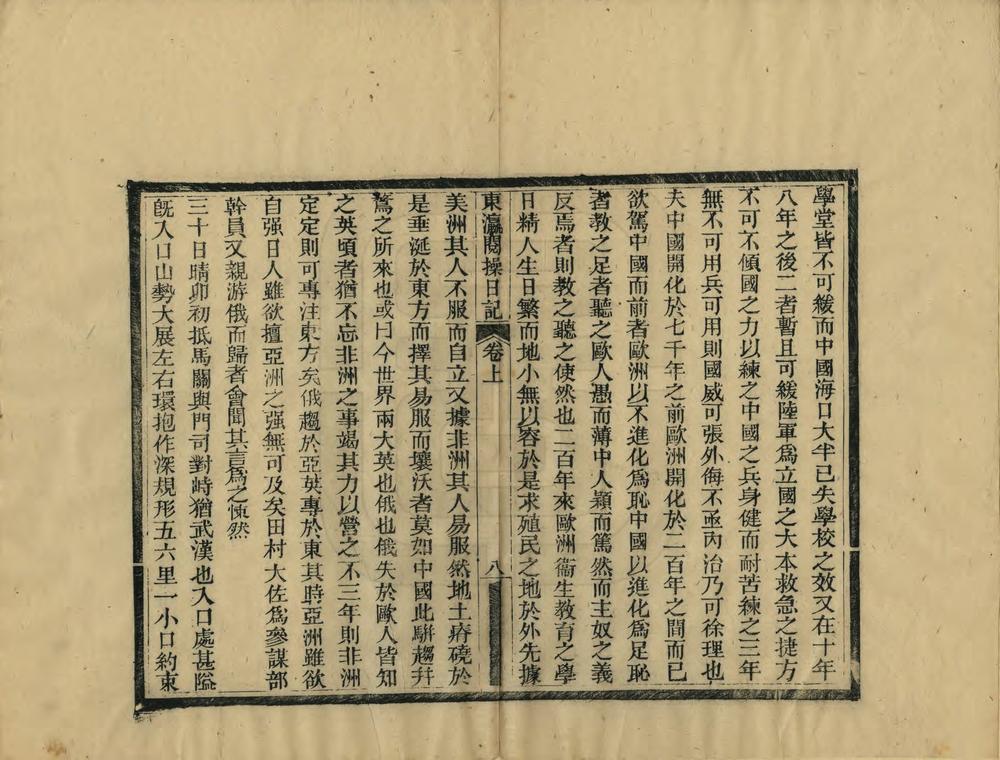 學堂皆不可緩而中國海口大半已失學校之效又在十年
八年之後二者暫且可緩陸軍爲立國之大本救急之捷方
不可不傾國之力以練之中國之兵身健而耐苦練之三年
無不可用兵可用則國威可張外侮不亟內治乃可徐理也
夫中國開化於七千年之前歐洲開化於二百年之間而已
欲駕中國而前者歐洲以不進化爲恥中國以進化爲足恥
者教之足者聽之歐人愚而薄中人穎而篤然而主奴之義
反焉者則教之聽之使然也二百年來歐洲衞生教育之學
日精人生日繁而地小無以容於是求殖民之地於外先據
東瀛閱操日記 卷上 八
美洲其人不服而自立又據非洲其人易服然地土瘠磽於
是垂涎於東方而擇其易服而壤沃者莫如中國此駢趨幷
騖之所來也或曰今世界兩大英也俄也俄失於歐人皆知
之英頃者猶不忘非洲之事竭其力以營之不三年則非洲
定定則可專注東方矣俄趨於亞英專於東其時亞洲雖欲
自强日人雖欲擅亞洲之强無可及矣田村大佐爲參謀部
幹員又親游俄而歸者會聞其言爲之悚然
三十日晴卯初抵馬關與門司對峙猶武漢也入口處甚隘
旣入口山勢大展左右環抱作深規形五六里一小口約束